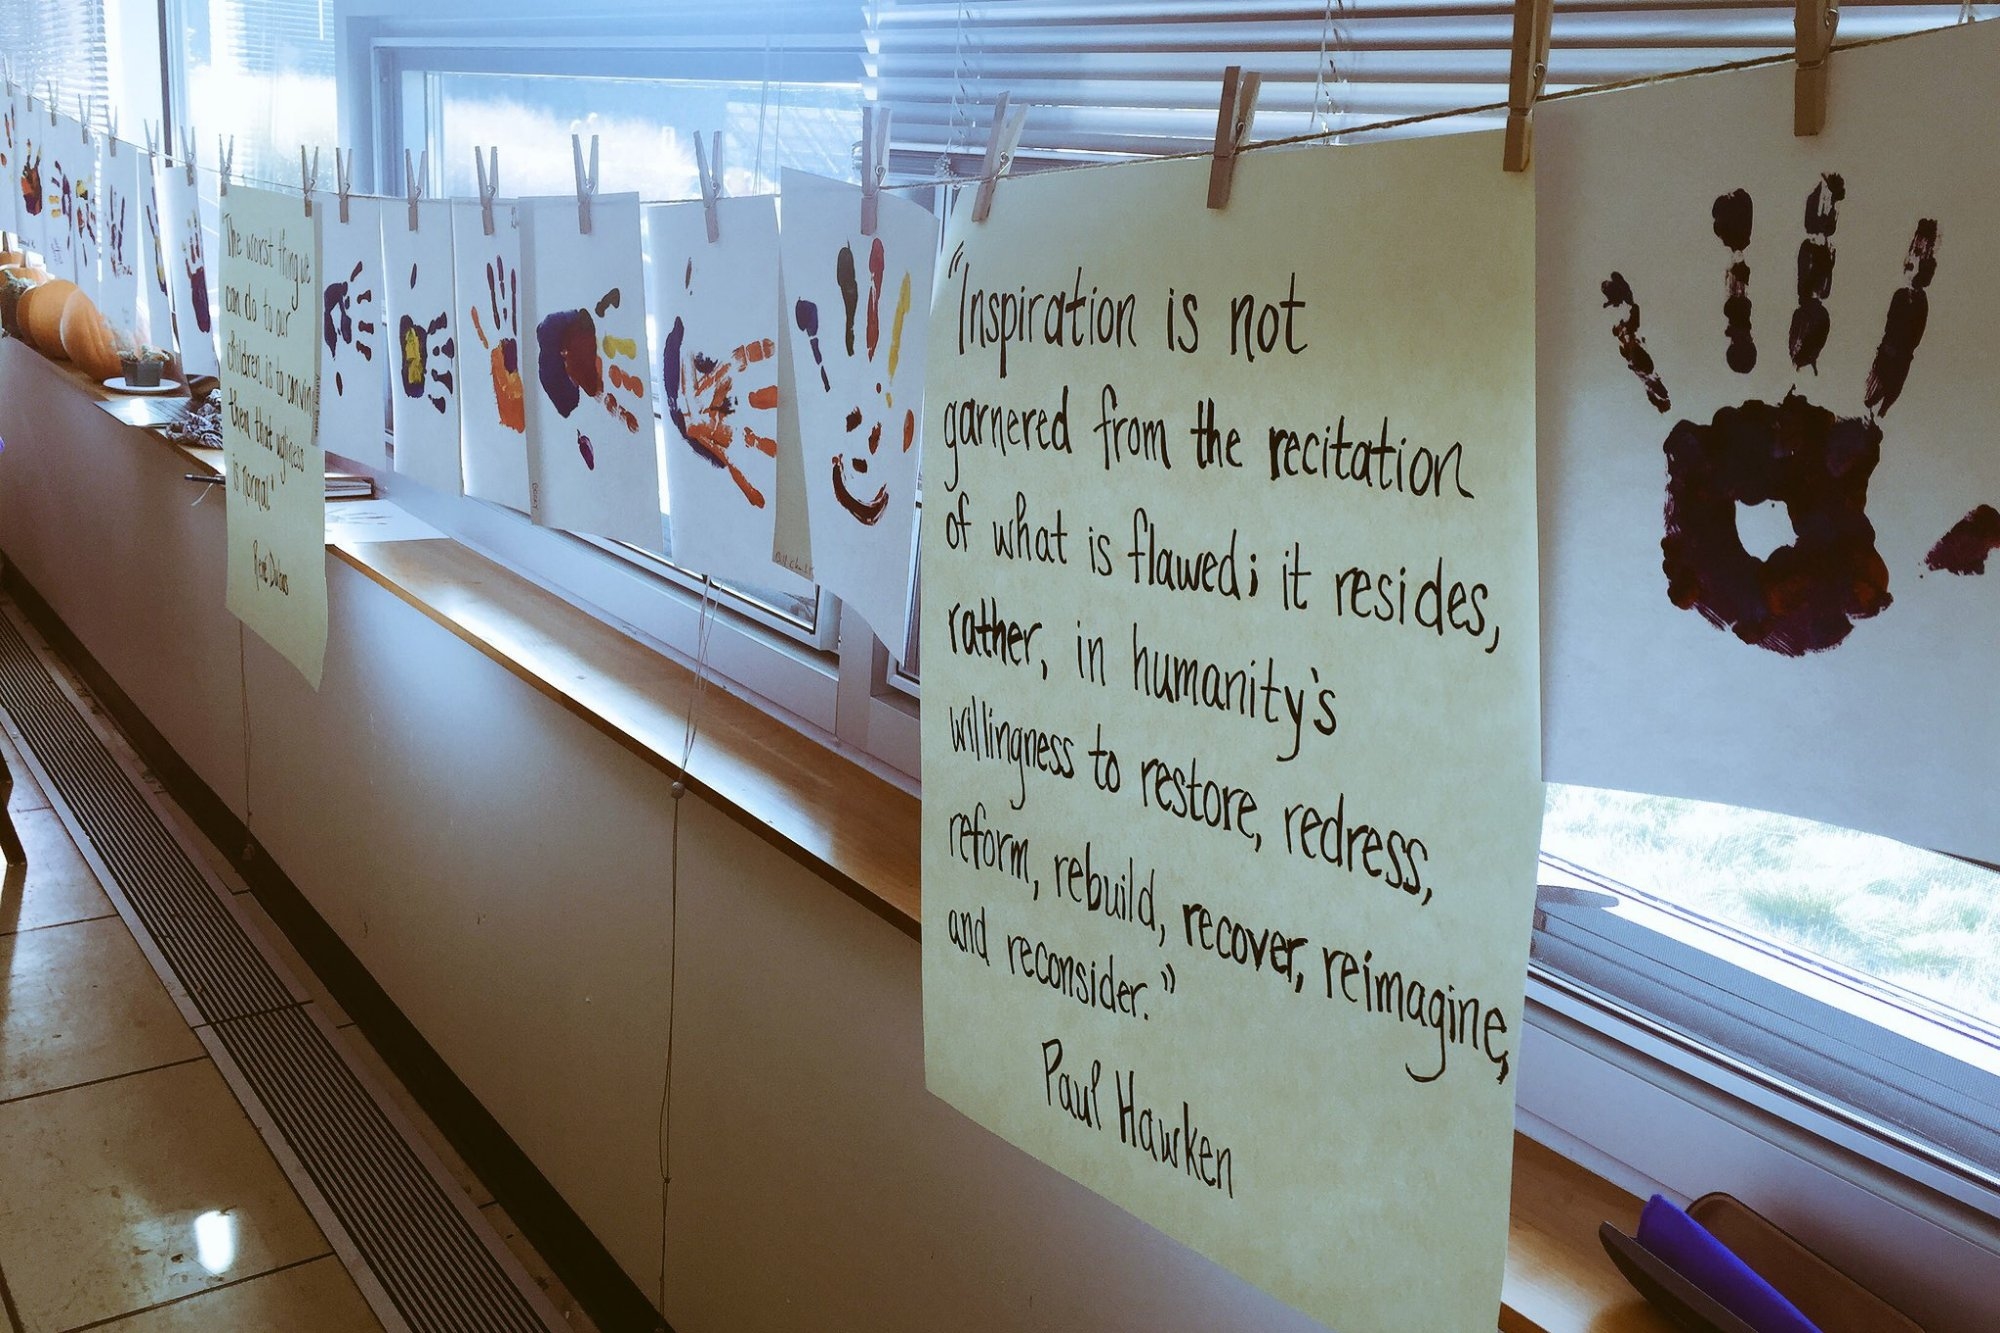 The worst thing we
can do to our
children is to convince
them that ugliness
is normal"
René Dubos
"Inspiration is not
garnered from the recitation
of what is flawed; it resides,
rather, in humanity's
willingness to restore, redress,
reform, rebuild, recover, reimagine,
and reconsider."
Paul Hawken